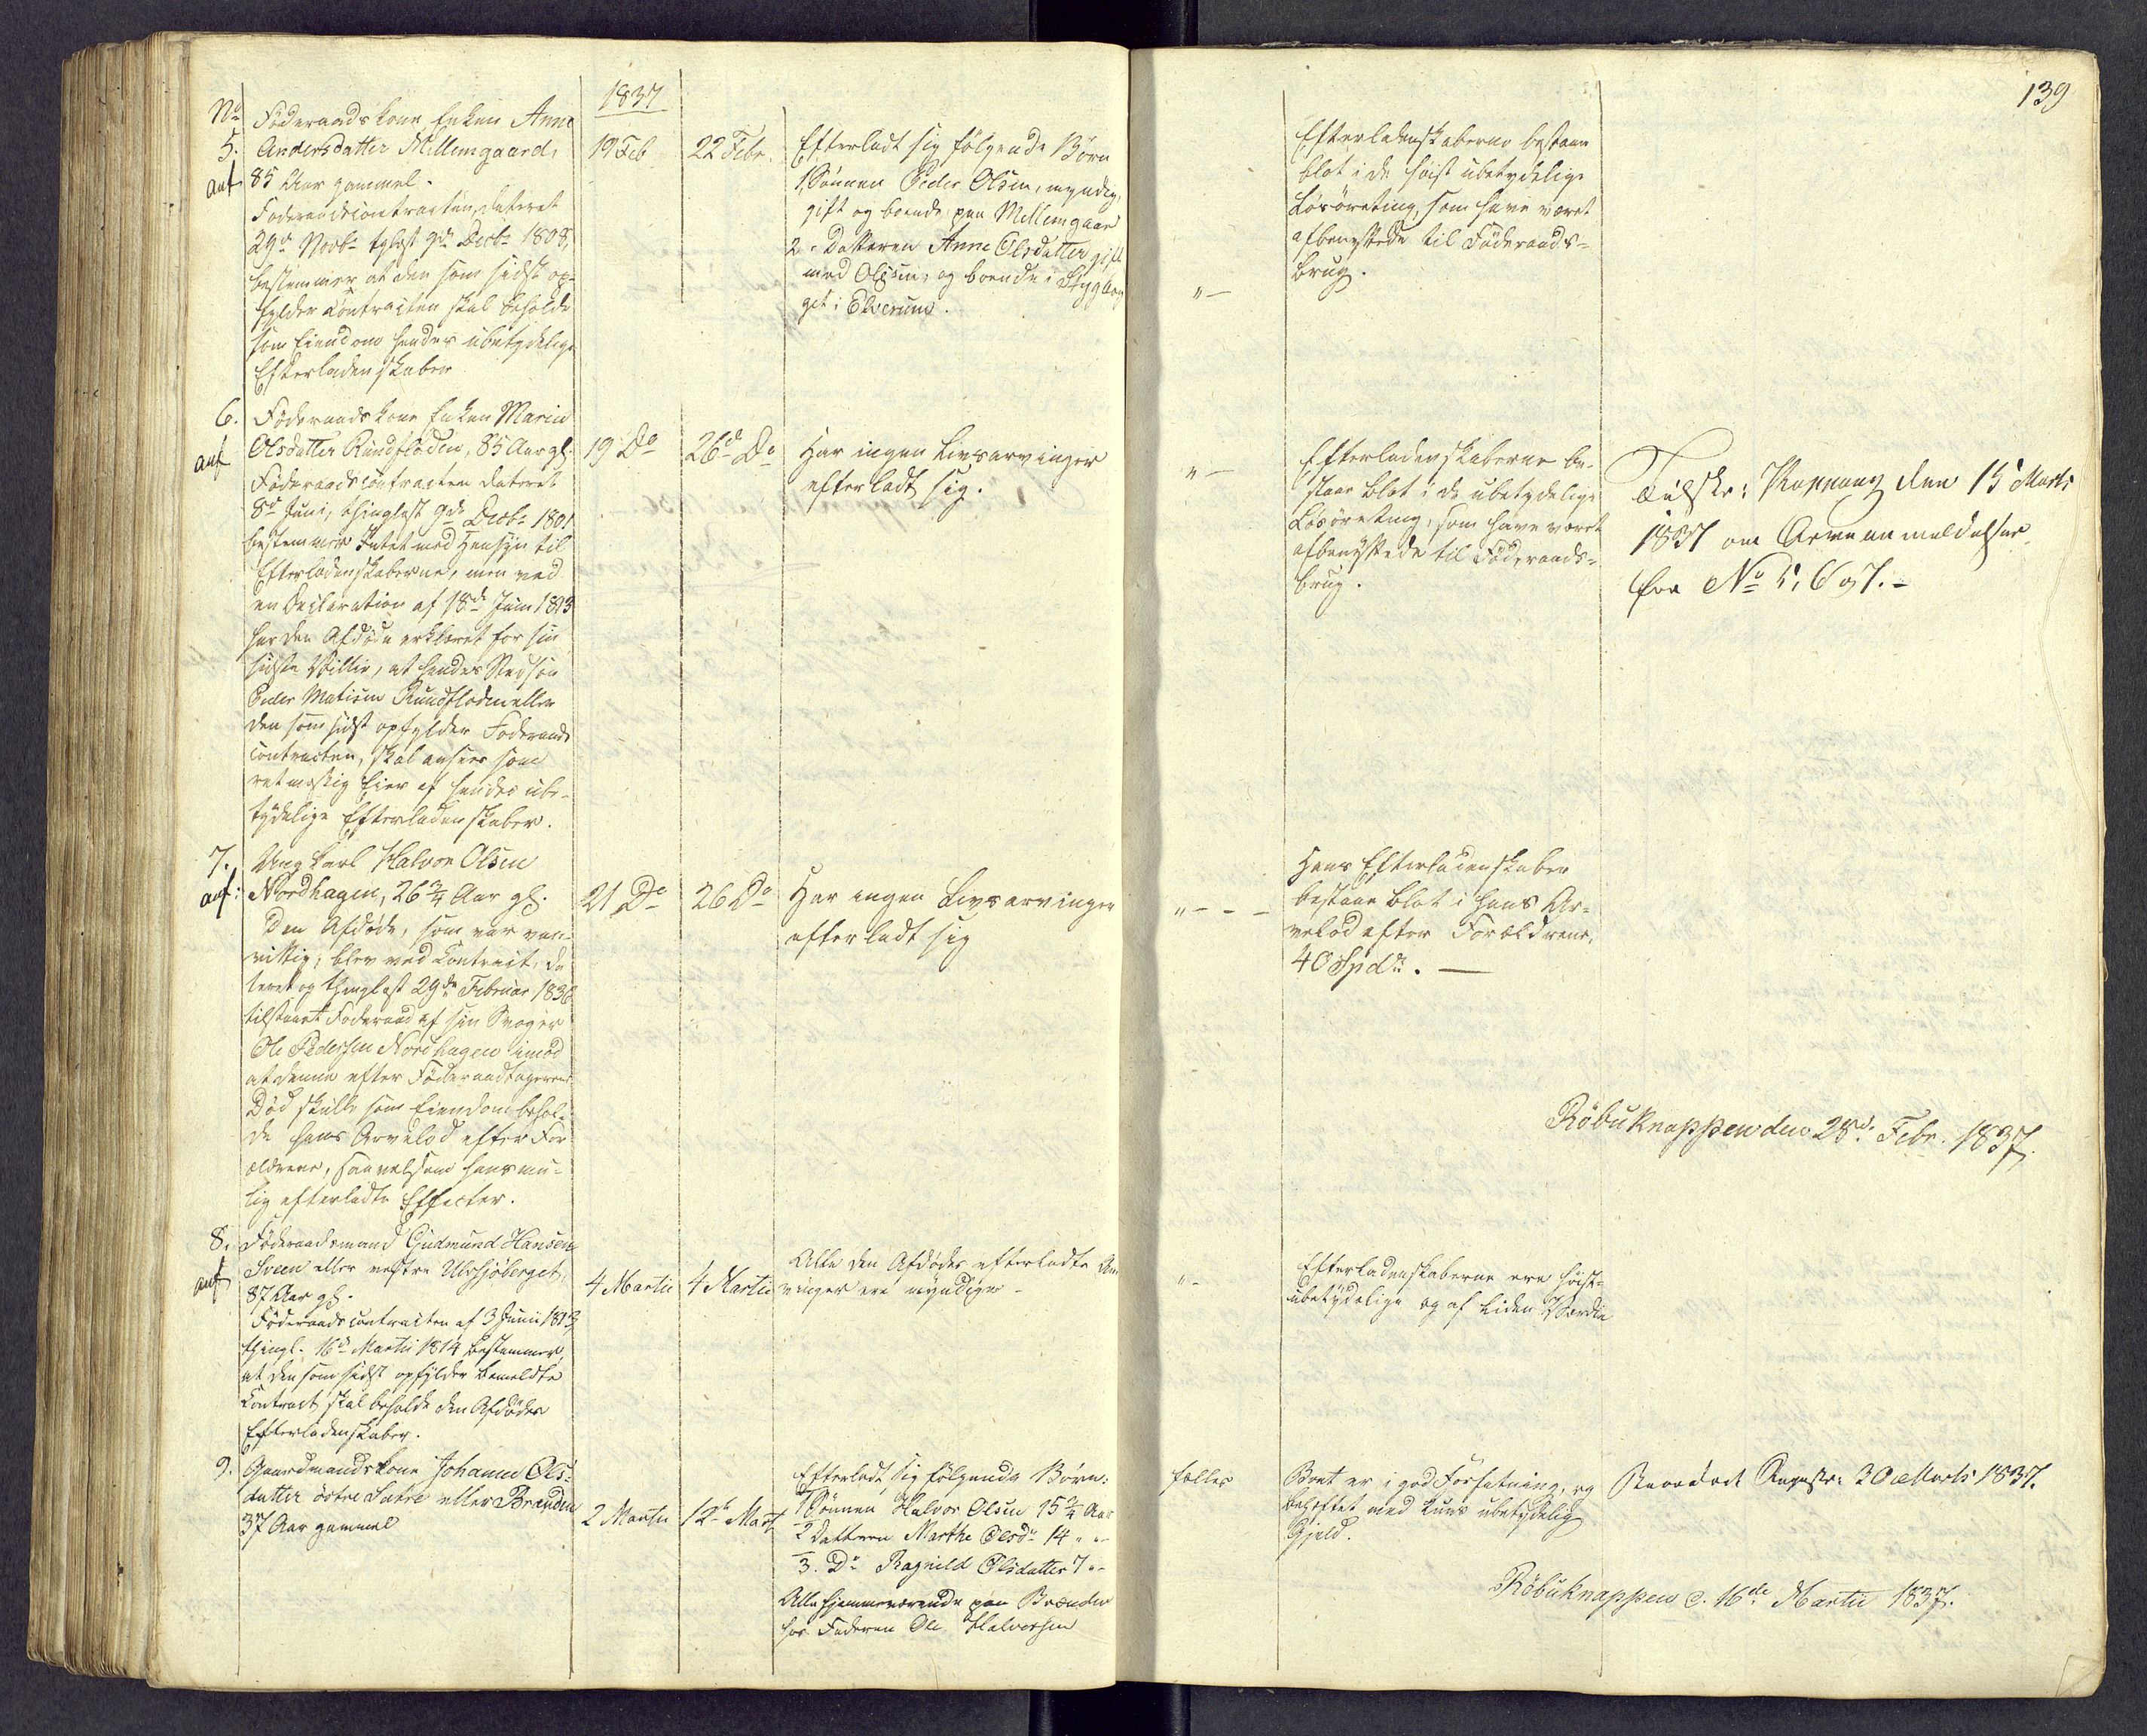 139
1837
No
5.
anf
Föderaadskone Enken Anne
Andersdatter Mellemgaard,
85 Aar gammel.
Föderaadscontracten, dateret
29d Novbr tglæst 9de Decbr 1808,
bestemmer at den som sidst op-
fylder Contracten skal beholde
som Eiendom hendes ubetydelige
Efterladenskaber
19 Feb
22 Febr.
Efterladt sig følgende Börn
1, Sønnen Peder Olsen, myndig,
gift og boende paa Mellemgaard
2. Datteren Anne Olsdatter gift
med Olsen, og boende i
get i Elverum.
"–
Efterladenskaberne bestaae
blot i de höist ubetydelige
Lösöreting, som have været
afbenyttede til Föderaads-
brug.
6.
anf
Föderaadskone Enken Marie
Olsdatter Rundfloden, 85 Aar gl.
Föderaadscontracten dateret
8d Juni, thinglæst 9de Decbr 1801
bestemmer Intet med Hensyn til
Efterladenskaberne, men ved
en Declaration af 18de Juni 1813
har den Afdöde erklæret for sin
sidste Villie, at hendes Stedsön
Peder Matisen Rundfloden eller
den som sidst opfylder Föderaads
contracten, skal ansees som
retmæssig Eier af hendes ube-
tydelige Efterladenskaber.
19 Do
26d Do
Har ingen Livsarvinger
efterladt sig.
"–
Efterladenskaberne be-
staae blot i de ubetydelige
Lösöreting, som have været
afbenyttede til Föderaads-
brug.
Tilskr: Koppang den 15 Marts
1837 om Arveanmeldelse
fra No 5, 6 og 7. –
7.
anf:
Ungkarl Halvor Olsen
Nordhagen, 26 3/4 Aar gl.
Den Afdöde, som var van-
vittig, blev ved Contract, da
teret og thinglæst 29de Februar 1836
tilstaaet Föderaad af sin Svoger
Ole Pedersen Nordhagen imod
at denne efter Föderaadtagerens
Död skulle som Eiendom behol-
de hans Arvelod efter For
ældrene, saavelsom hans mu-
lig efterladte Effecter.
21 Do
26 Do
Har ingen Livsarvinger
efterladt sig
" – – –
Hans Efterladenskaber
bestaae blot i hans Ar-
velod efter Forældrene,
40 Spdr. —
Röbuknappen den 28d Febr. 1837.
8.
anf
Föderaadsmand Gudmund Hansen
Sveen eller vestre Ulvsjöberget,
87 Aar gl.
Föderaadscontracten af 3 Junii 1813,
thingl. 16d Martii 1814 bestemmer,
at den som sidst opfylder bemeldte
Contract skal beholde den Afdödes
Efterladenskaber.
4 Martii
4 Martii
Alle den Afdödes efterladte Ar
vinger ere myndige –
"–
Efterladenskaberne ere höist-
ubetydelige og af liden Værdie
9.
Gaardmandskone Johanne Ols-
datter östre Sætre eller Brænden
37 Aar gammel
2 Martii
12te Mart
Efterladt sig følgende Börn:
1 Sönnen Halvor Olsen 15 3/4 Aar
2 Datteren Marthe Olsdr 14 " –
3. Do Ragnild Olsdatter 7 " –
Alle hjemmeværende paa Brænden
hos Faderen Ole Halvorsen
fælles
Boet er i god Forfatning, og
behæftet med kuns ubetydelig
Gjeld.
Registr: 30 Marts 1837.
Röbuknappen d. 16de Martii 1837.